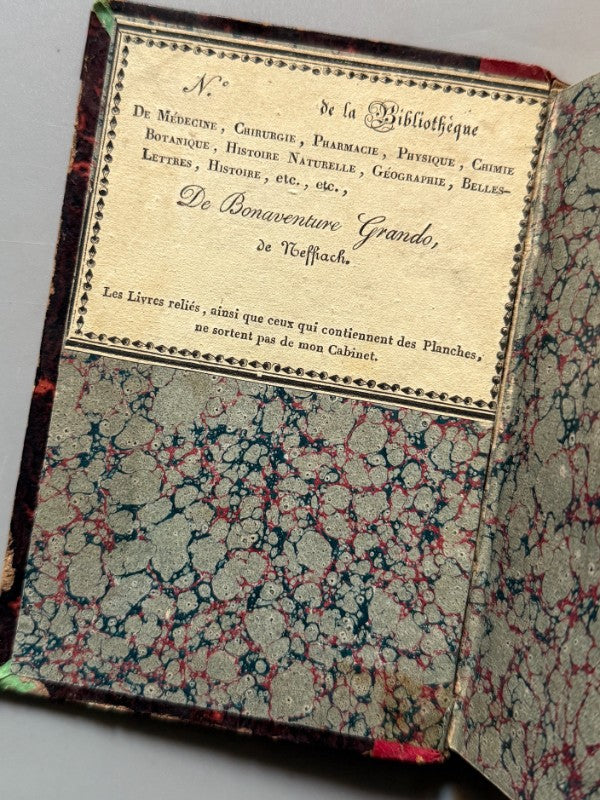 N.° de la Bibliothèque
De Médecine, Chirurgie, Pharmacie, Physique, Chimie
Botanique, Histoire Naturelle, Géographie, Belles-
Lettres, Histoire, etc., etc.,
De Bonaventure Grando,
de Neffiach.
Les Livres reliés, ainsi que ceux qui contiennent des Planches,
ne sortent pas de mon Cabinet.